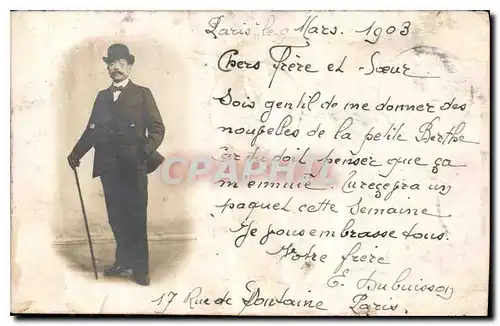 Paris le 9 Mars. 1903
Chers Frère et Sœur
Sois gentil de me donner des
nouvelles de la petite Berthe
car tu doit penser que ça
m'ennuie Tu recevra un
paquet cette Semaine
Je vous embrasse tous.
Votre frère
E. Dubuisson
17 Rue de Fontaine Paris.
CPAPHIL